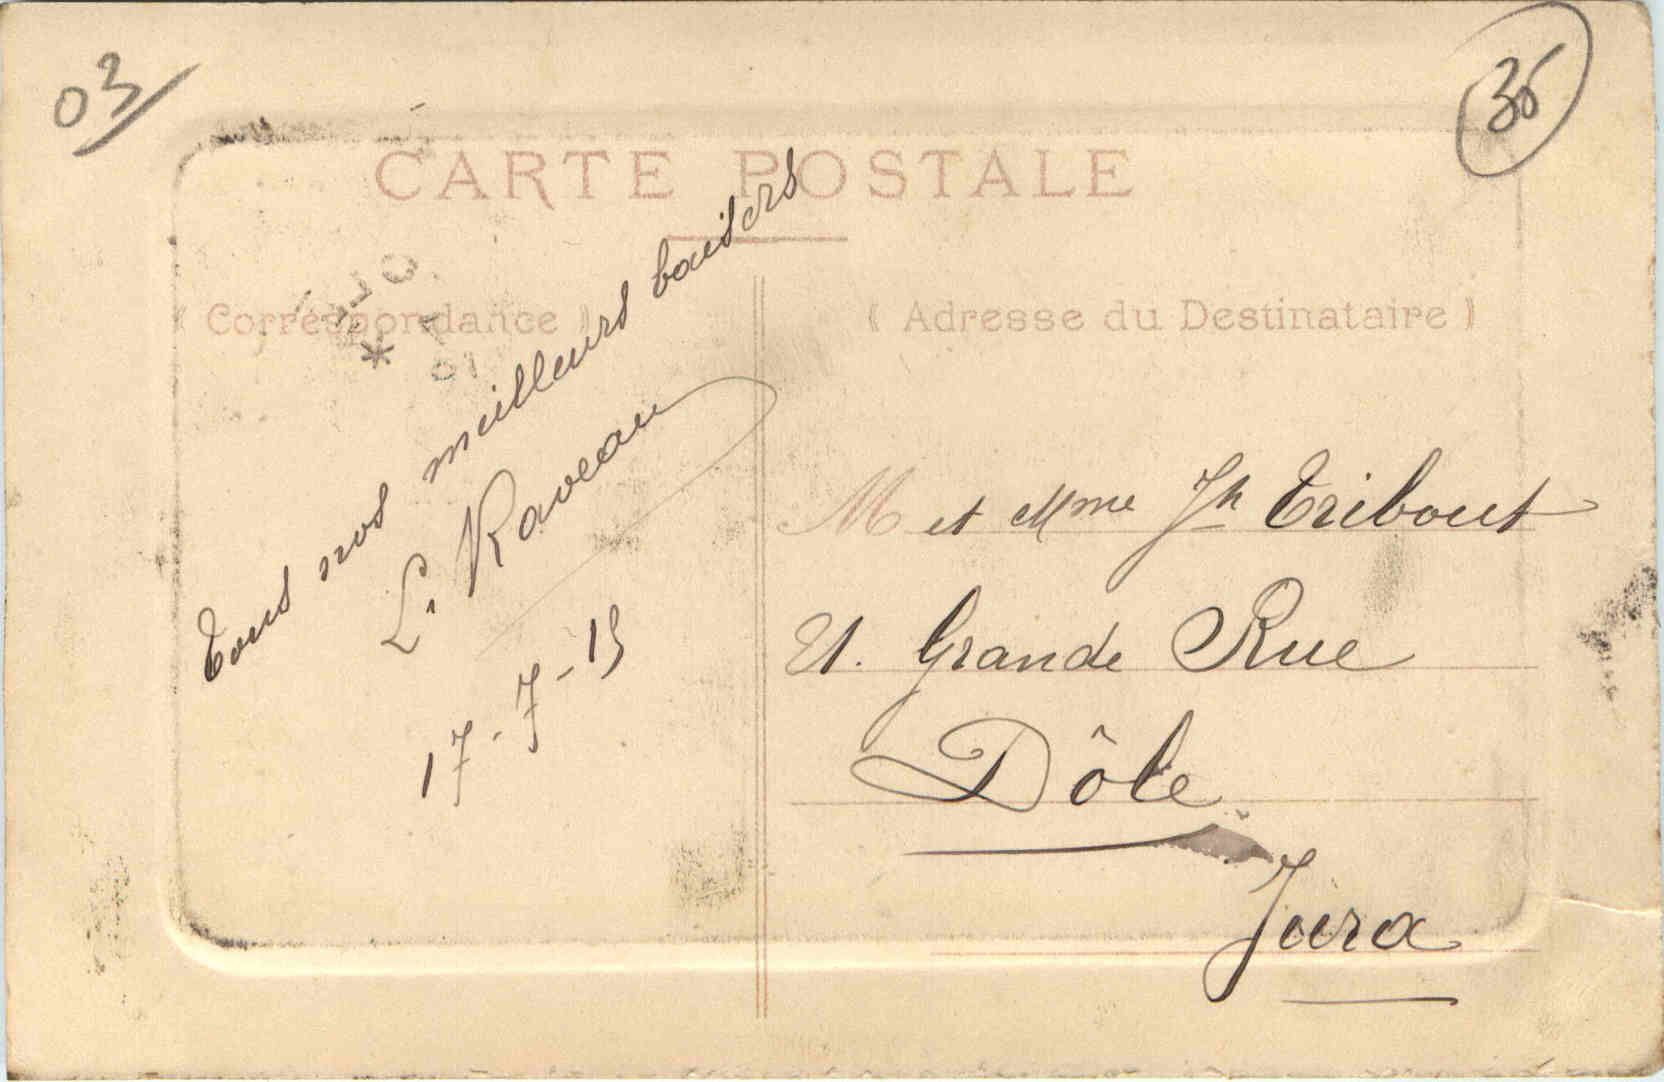 03
36
CARTE POSTALE
( Correspondance )
( Adresse du Destinataire )
Tous nos meilleurs baisers
L. Raveau
17-7-15
M et Mme Jh Tribout
21. Grande Rue
Dôle
Jura